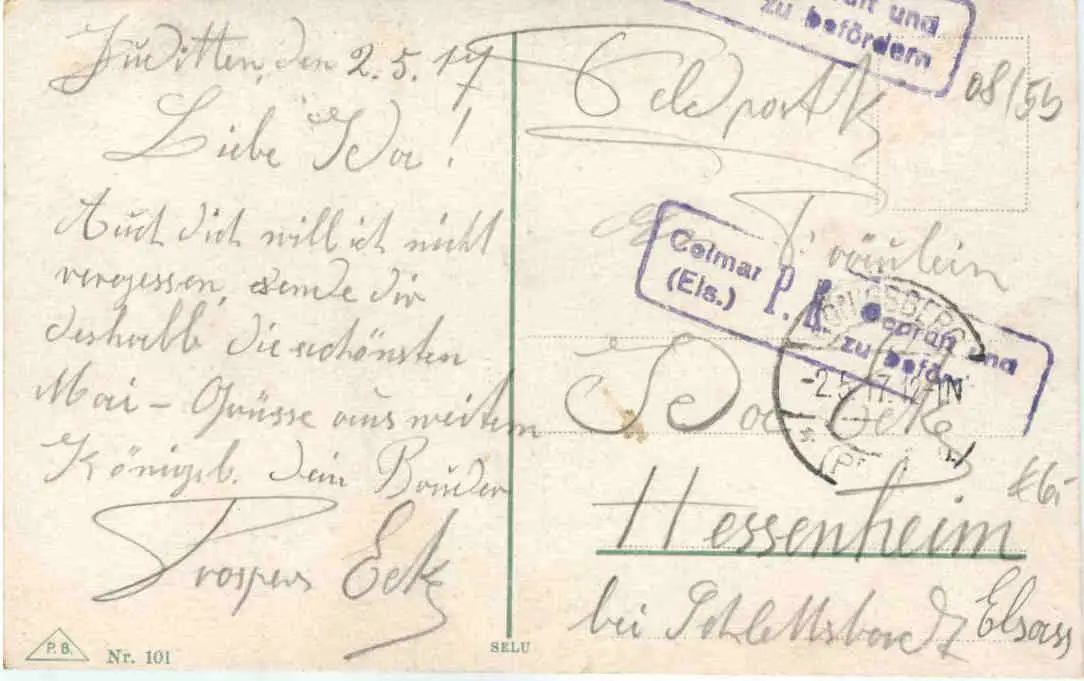 Juditten, den 2.5.17
Liebe Ida!
Auch dich will ich nicht
vergessen, sende dir
deshalb die schönsten
Mai – Grüsse aus weitem
Königsb. Dein Bruder
Prosper Eck
P.B. Nr. 101
SELU
zu befördern
Feldpostk
08/55
Fräulein
Colmar P.K. Geprüft und
(Els.) zu beförd
KÖNIGSBERG
-2.5.17.12-1N
(PR
Ida Eck
Hessenheim
bei Schlettstadt Elsass